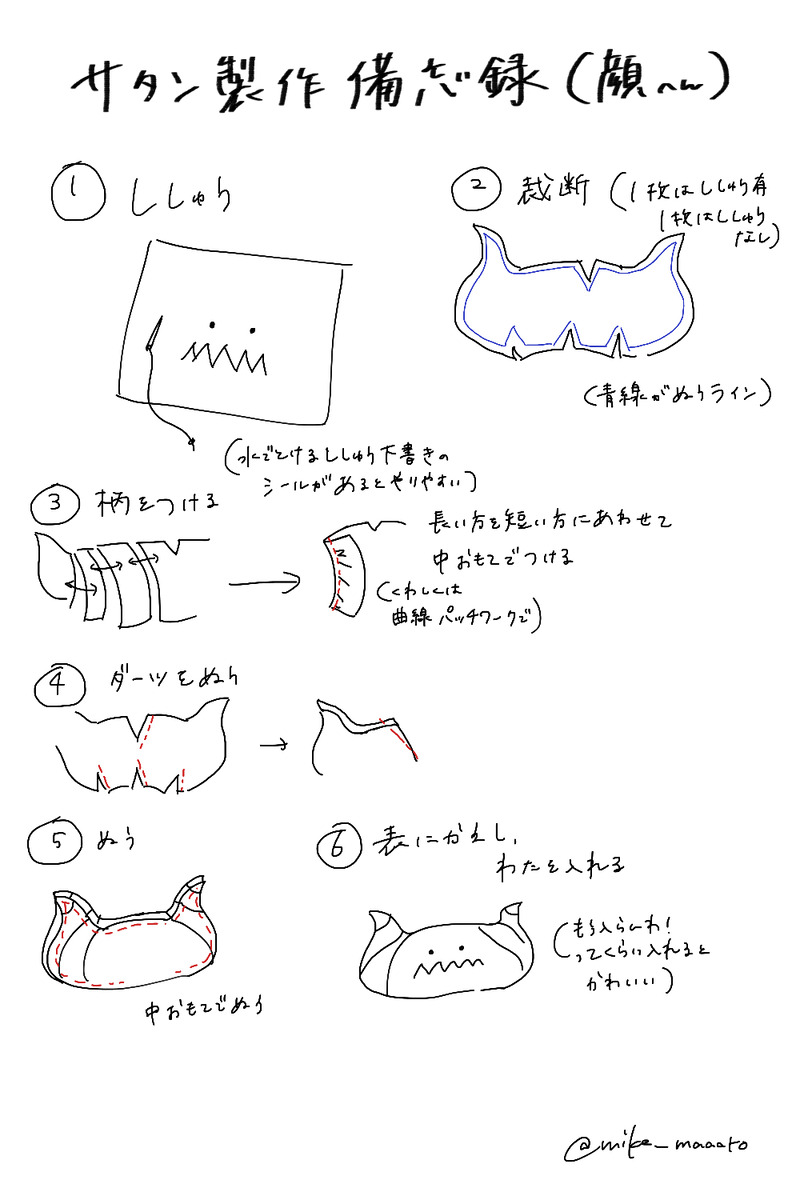 サタン製作備忘録(顔へん)
① ししゅう
② 裁断(1枚はししゅう有
1枚はししゅう
なし)
(青線がぬうライン)
(水でとけるししゅう下書きの
シールがあるとやりやすい)
③ 柄をつける
長い方を短い方にあわせて
中おもてでつける
(くわしくは
曲線パッチワークで)
④ ダーツをぬう
⑤ ぬう
中おもてでぬう
⑥ 表にかえし、
わたを入れる
(もう入らんわ!
ってくらい入れると
かわいい)
@mike_maaato